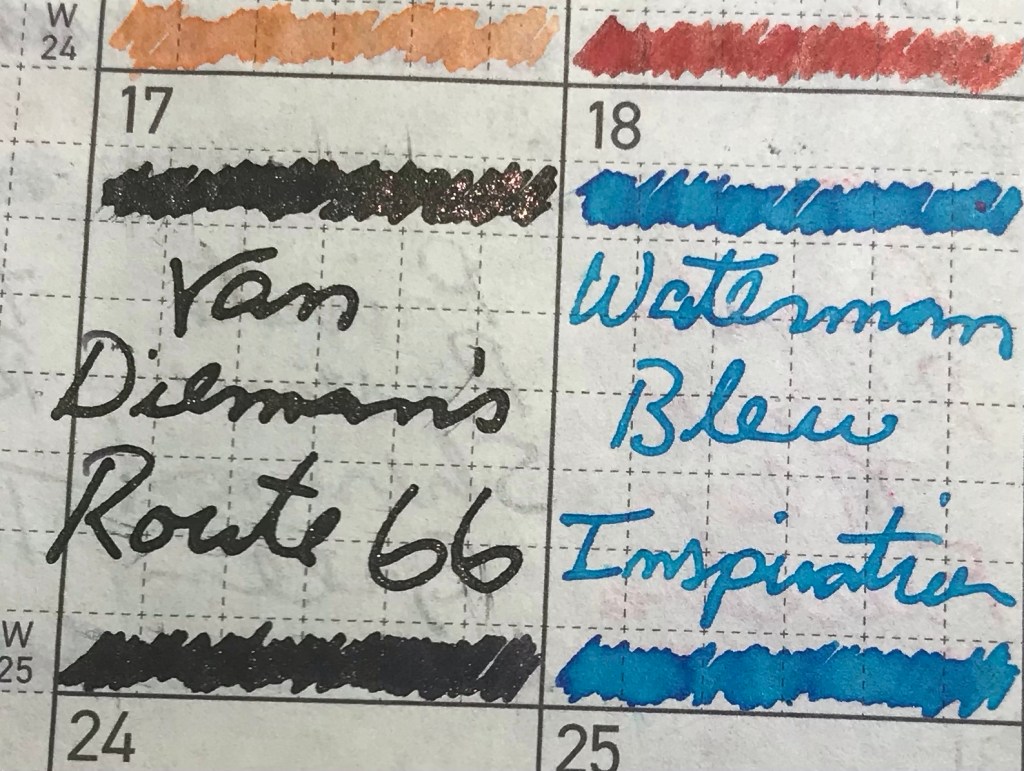 W
24
17
18
Van
Dieman's
Route 66
Waterman
Bleu
Inspiration
W
25
24
25